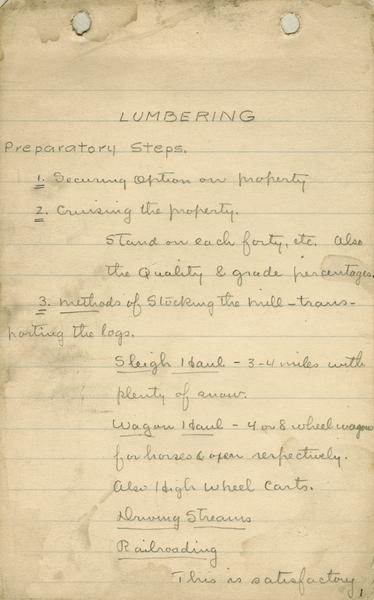 LUMBERING
Preparatory Steps.
1. Securing Option on property
2. Cruising the property.
Stand on each forty, etc. Also
the Quality & grade percentages.
3. methods of Stocking the mill-trans-
porting the logs.
Sleigh Haul - 3-4 miles with
plenty of snow.
Wagon Haul - 4 or 8 wheel wagons
for horses & oxen respectively.
Also High Wheel Carts.
Driving Streams
Railroading
This is satisfactory
1